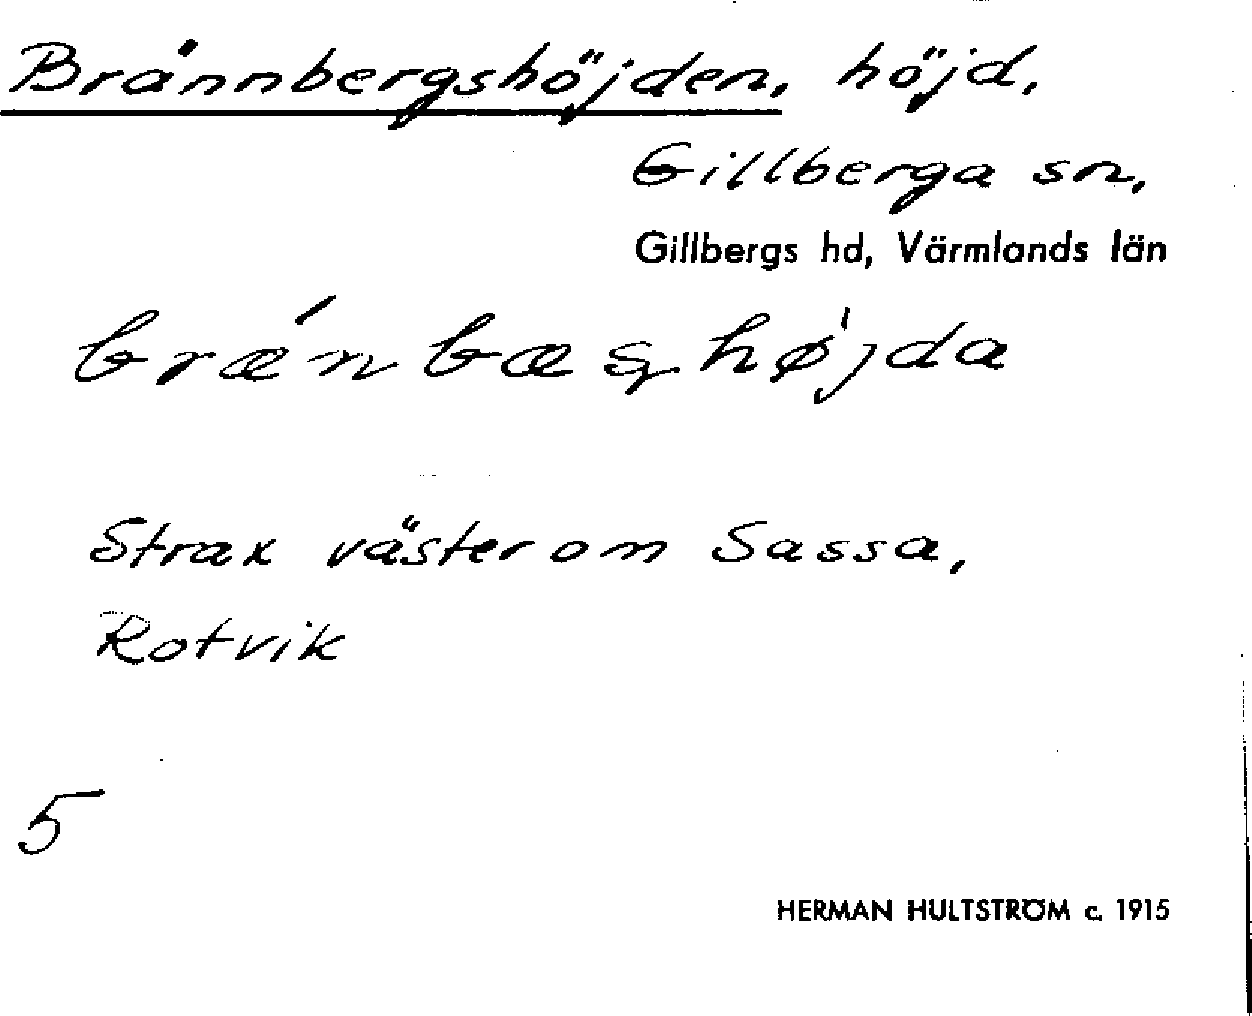 Brännbergshöjden, höjd,
Gillberga sn,
Gillbergs hd, Värmlands län
Strax väster om Sassa,
Rotvik
5
HERMAN HULTSTRÖM c. 1915